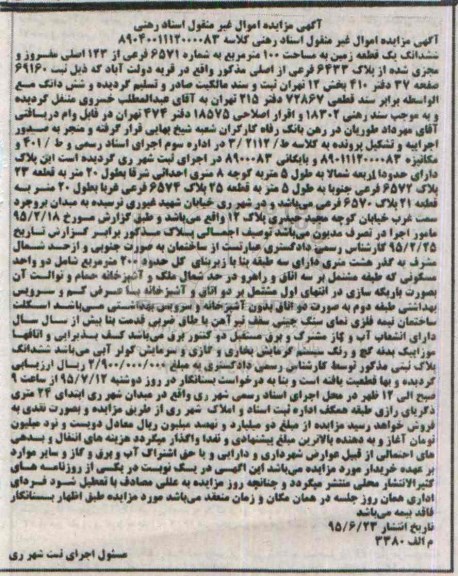 آگهی مزایده اموال غیر منقول اسناد رهنی
آگهی مزایده اموال غیر منقول اسناد رهنی کلاسه ۸۹۰۴۰۰۱۱۱۲۰۰۰۰۸۳
ششدانگ یک قطعه زمین به مساحت ۱۰۰ مترمربع به شماره ۶۵۷۱ فرعی از ۱۴۳ اصلی مفروز و
مجزی شده از پلاک ۶۴۳۳ فرعی از اصلی مذکور واقع در قریه دولت آباد که ذیل ثبت ۶۹۱۶۰
صفحه ۳۷ دفتر ۴۱۰ بخش ۱۲ تهران ثبت و سند مالکیت صادر و تسلیم گردیده و شش دانگ مع
الواسطه برابر سند قطعی ۷۲۸۶۷ دفتر ۲۱۵ تهران به آقای عبدالمطلب خسروی منتقل گردیده
و به موجب سند رهنی ۱۸۳۰۲ و اقرار اصلاحی ۱۸۵۷۵ دفتر ۴۷۴ تهران در قابل وام دریافتی
آقای مهرداد طوریان در رهن بانک رفاه کارگران شعبه شیخ بهایی قرار گرفته و منجر به صدور
اجرائیه و تشکیل پرونده به کلاسه ط/۲۱۱۲/ ۳ در اداره سوم اجرای اسناد رسمی و ط / ۴۰۱ و
مکانیزه ۸۹۰۱۱۱۲۰۰۰۰۸۳ و بایگانی ۸۹۰۰۰۸۳ در اجرای ثبت شهر ری گردیده است این پلاک
دارای حدود اربعه شمالا به طول ۵ متر به کوچه ۸ متری احداثی شرقا بطول ۲۰ متر به قطعه ۲۳
پلاک ۶۵۷۲ فرعی جنوبا به طول ۵ متر به قطعه ۲۵ پلاک ۶۵۷۴ فرعی غربا بطول ۲۰ متر به
قطعه ۲۱ پلاک ۶۵۷۰ فرعی می‌باشد و در شهرری خیابان شهید غیوری نرسیده به میدان بروجرد
سمت غرب خیابان کوچه مجید حیدری پلاک ۱۲ واقع می‌باشد و طبق گزارش مورخ ۹۵/۲/۱۸
مامور اجرا در تصرف مدیون می‌باشد توصیف اجمالی پلاک مذکور برابر گزارش تاریخ
۹۵/۲/۲۵ کارشناس رسمی دادگستری عبارتست از ساختمان به صورت جنوبی و از حد شمال
مشرف به گذر هشت متری دارای سه طبقه بنا با زیربنای کل حدود ۲۰۰ مترمربع شامل دو واحد
مسکونی که طبقه مشتمل بر سه اتاق و راهرو در حد شمال ملک و آشپزخانه حمام و توالت آن
بصورت باریکه سازی در انتهای اول مشتمل بر دو اتاق و آشپزخانه با مصرفی گم و سرویس
بهداشتی طبقه دوم به صورت دو اتاق بدون آشپزخانه و سرویس بهداشتی می‌باشد اسکلت
ساختمان نیمه فلزی نمای سنگ چینی سقف تیر آهن با طاق ضربی قدمت بنا بیش از سال سال
دارای انشعاب آب و گاز مشترک و برق مستقل دو کنتور برق می‌باشد کف پذیرایی و اتاقها
موزاییک بدنه گچ و رنگ سیستم گرمایش بخاری و گازی و سرمایش کولر آبی می‌باشد ششدانگ
پلاک ثبتی مذکور توسط کارشناس رسمی دادگستری به مبلغ ۲/۹۰۰/۰۰۰/۰۰۰ ریال ارزیابی
گردیده و بها قطعیت یافته است و بنا به درخواست بستانکار در روز دوشنبه ۹۵/۷/۱۲ از ساعت ۹
صبح الی ۱۲ ظهر در محل اجرای اسناد رسمی شهر ری واقع در میدان شهر ری ابتدای ۲۴ متری
ذکریای رازی طبقه همکف اداره ثبت اسناد و املاک شهر ری از طریق مزایده و بصورت نقدی به
فروش خواهد رسید مزایده از مبلغ دو میلیارد و نهصد میلیون ریال معادل دویست و نود میلیون
تومان آغاز و به دهنده بالاترین مبلغ پیشنهادی و نقدا واگذار میگردد هزینه های انتقال و بدهی
های احتمالی از قبیل عوارض شهرداری و دارایی و یا حق اشتراک آب و برق و گاز و سایر موارد
بر عهده خریدار مورد مزایده می‌باشد این آگهی در یک نوبت در یکی از روزنامه های
کثیرالانتشار محلی منتشر میگردد و چنانچه روز مزایده به عللی مصادف با تعطیل شود فردای
اداری همان روز جلسه در همان مکان و زمان منعقد می‌باشد مورد مزایده طبق اظهار بستانکار
فاقد بیمه می‌باشد
تاریخ انتشار ۹۵/۶/۲۳
م الف ۳۳۸۰
مسئول اجرای ثبت شهر ری